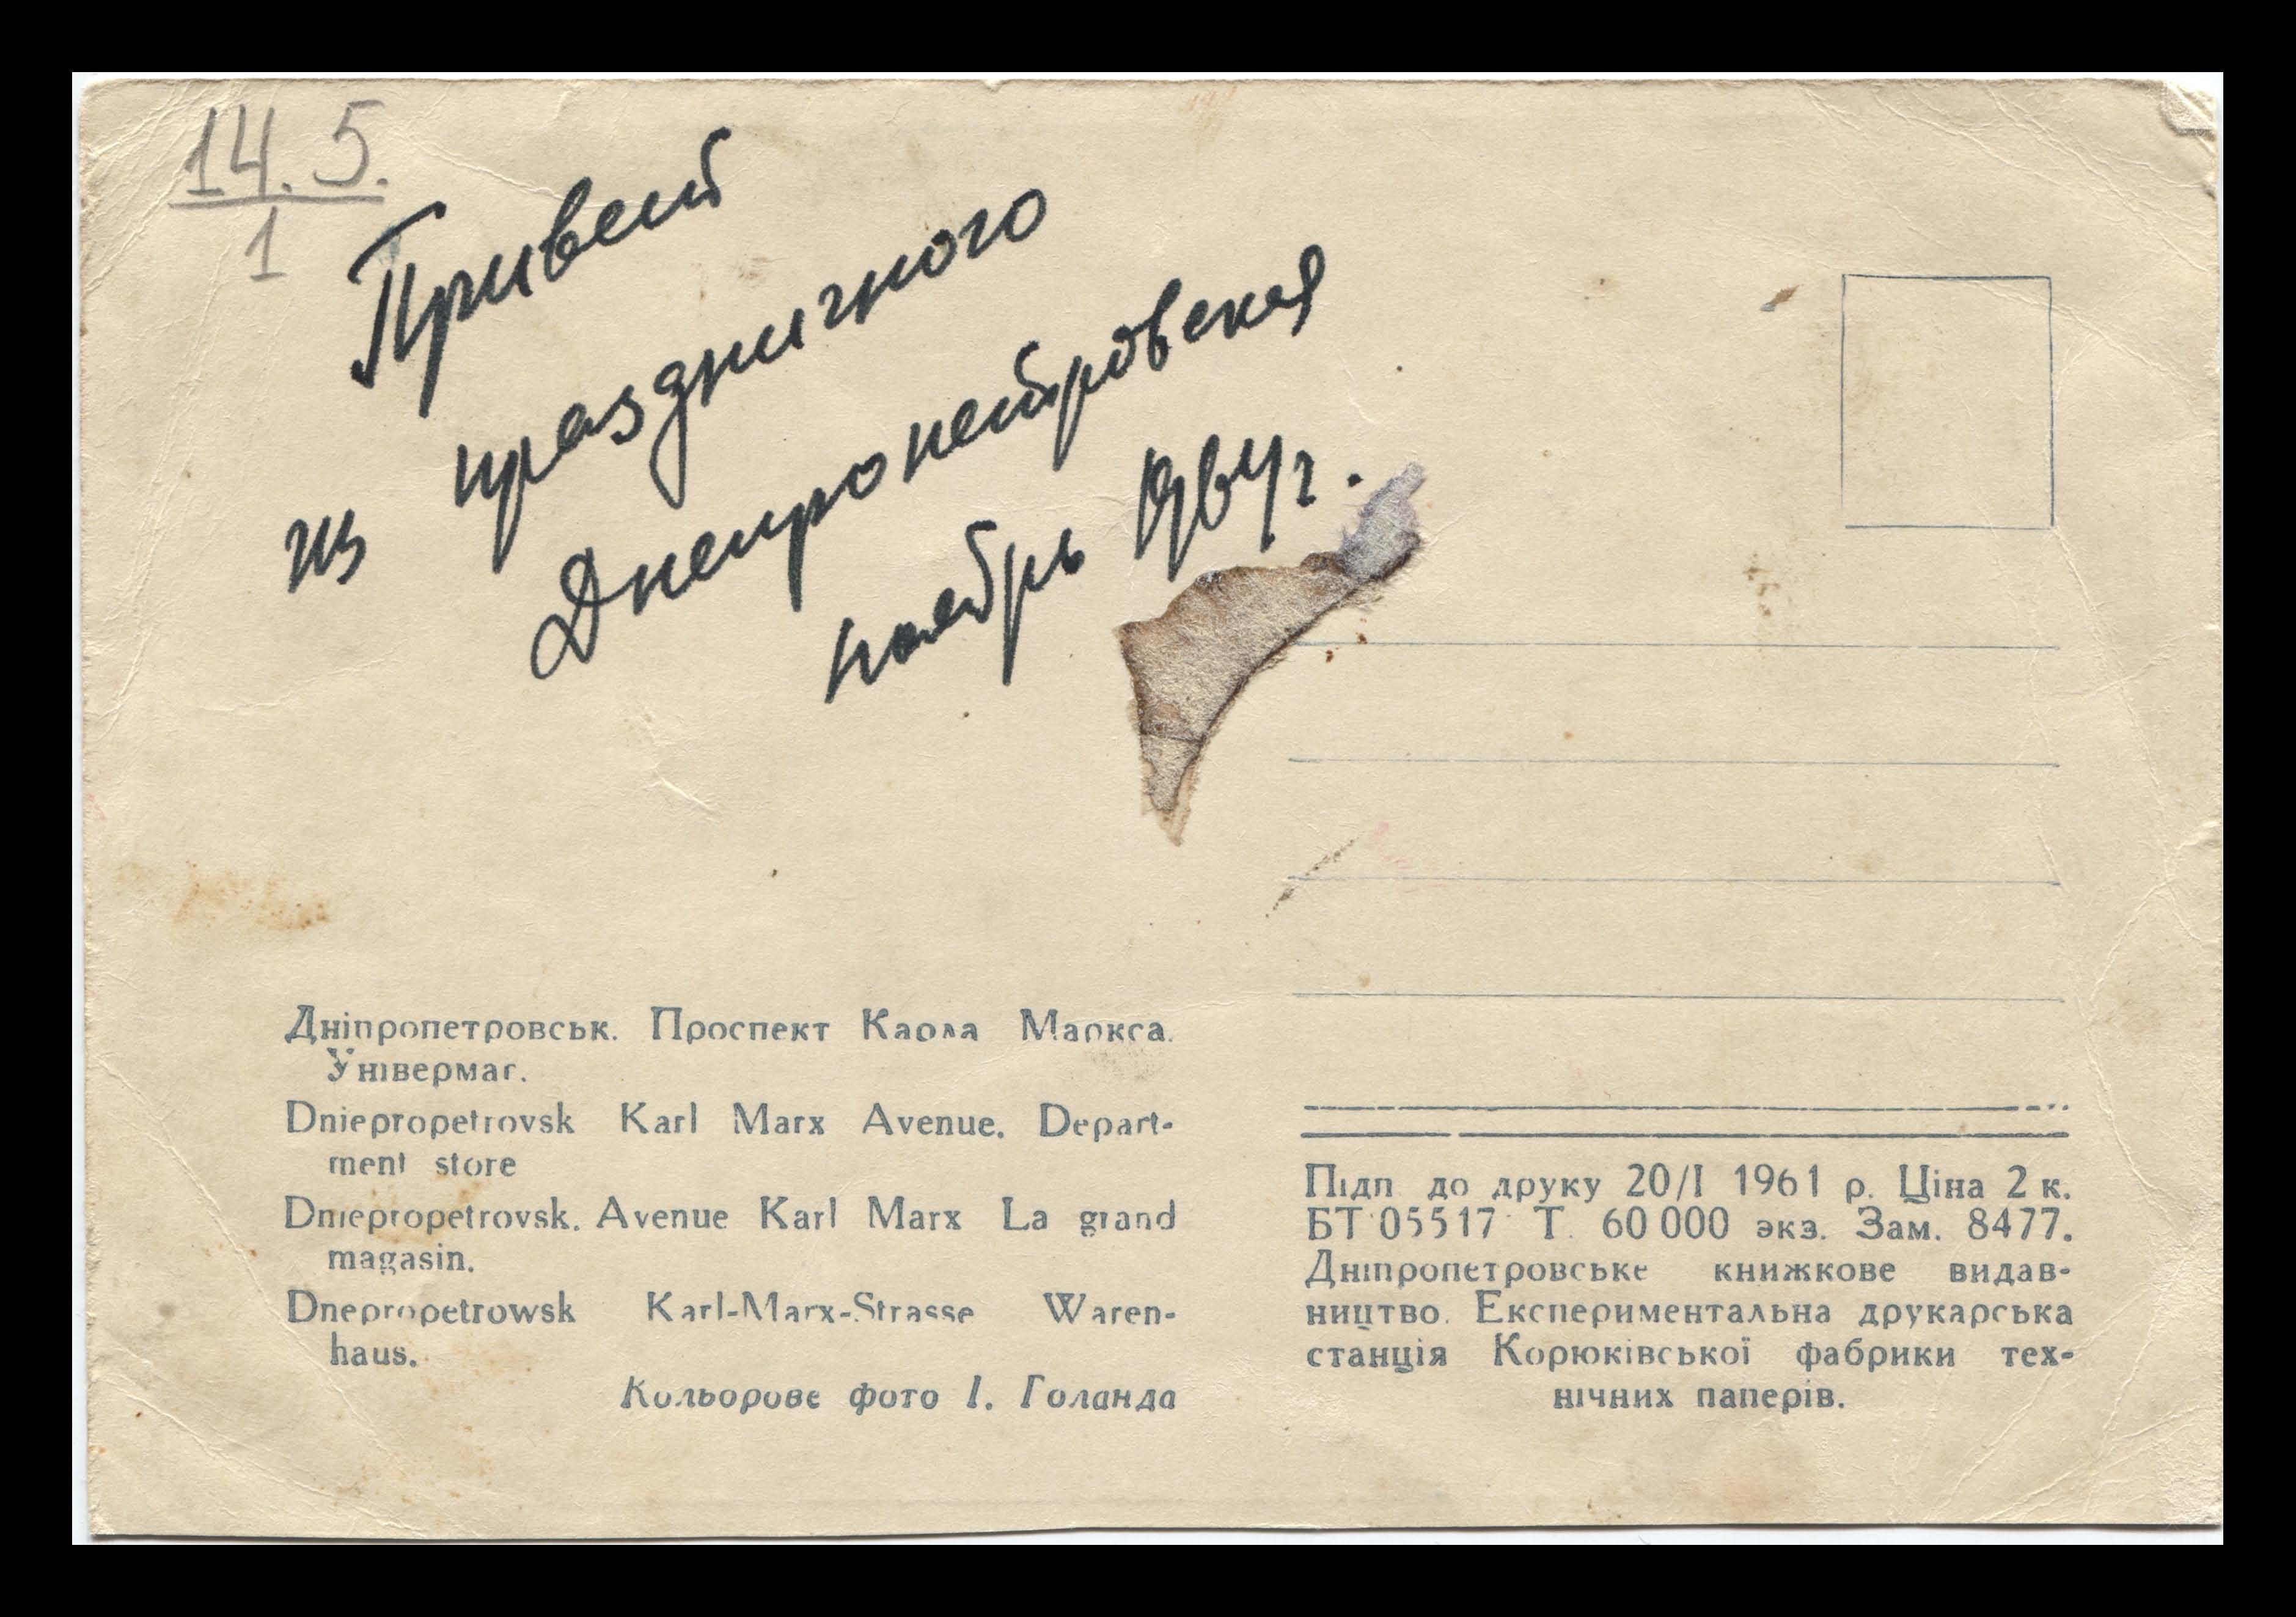 14.5.
1
Привет
из праздничного
Днепропетровска
ноябрь 1964 г.
Дніпропетровськ. Проспект Карла Маркса.
Універмаг.
Dniepropetrovsk Karl Marx Avenue. Depart-
ment store
Dniepropetrovsk. Avenue Karl Marx La grand
magasin.
Dnepropetrowsk Karl-Marx-Strasse Waren-
haus.
Кольорове фото І. Голанда
Підп до друку 20/I 1961 р. Ціна 2 к.
БТ 05517 Т. 60 000 экз. Зам. 8477.
Дніпропетровське книжкове видав-
ництво. Експериментальна друкарська
станція Корюківської фабрики тех-
нічних паперів.